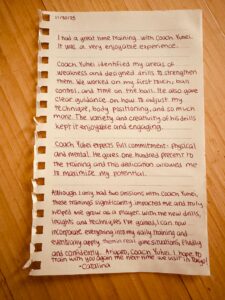 I had a great time training with Coach Yuhei.
It was a very enjoyable experience.
Coach Yuhei identified my areas of
weakness and designed drills to strengthen
them. We worked on my first touch, ball
control, and time on the ball. He also gave
clear guidance on how to adjust my
technique, body positioning, and so much
more. The variety and creativity of his drills
kept it enjoyable and engaging.
Coach Yuhei expects full commitment: physical
and mental. He gives one hundred percent to
the training and this dedication allowed me
to maximize my potential.
Although I only had two sessions with Coach Yuhei,
these trainings significantly impacted me and truly
helped me grow as a player. With the new drills,
insights and techniques I've gained, I can now
incorporate everything into my daily training and
eventually apply them in real game situations, fluidly
and confidently. Coach Yuhei, I hope to
train with you again the next time we visit in
-Catalina